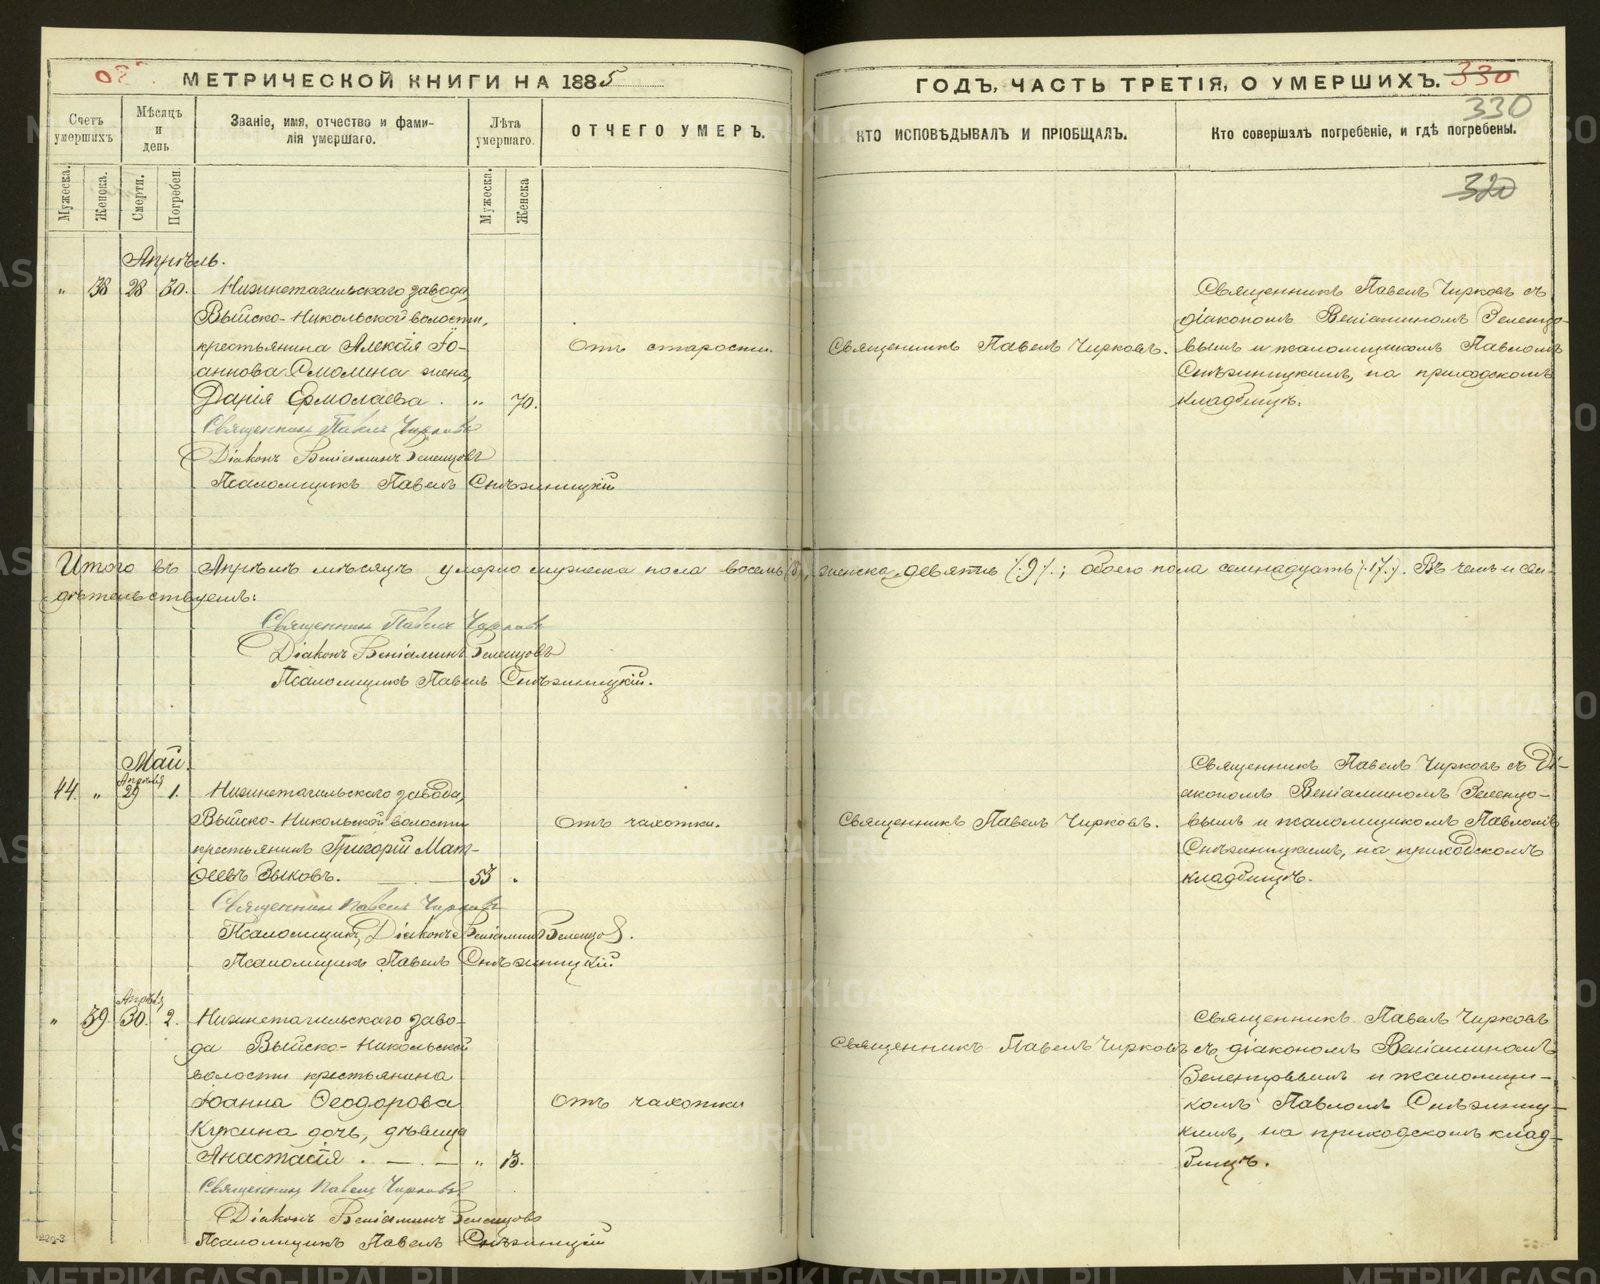 МЕТРИЧЕСКОЙ КНИГИ НА 1885
ГОДЪ, ЧАСТЬ ТРЕТІЯ, О УМЕРШИХЪ.
330
330
320
Счетъ умершихъ
Мѣсяцъ и день
Званіе, имя, отчество и фами-
лія умершаго.
Лѣта умершаго.
ОТЧЕГО УМЕРЪ.
КТО ИСПОВѢДЫВАЛЪ И ПРІОБЩАЛЪ.
Кто совершалъ погребеніе, и гдѣ погребены.
Мужеска.
Женска.
Смерти.
Погребен.
Мужеска.
Женска
Апрѣль.
" 38 28 30. Нижнетагильскаго завода,
Выйско-Никольской волости,
крестьянина Алексія Іо-
аннова Смолина жена,
Дарія Ермолаева. " 70.
Отъ старости.
Священникъ Павелъ Чирковъ.
Священникъ Павелъ Чирковъ съ
діакономъ Веніаминомъ Зеленцо-
вымъ и псаломщикомъ Павломъ
Снѣжницкимъ, на приходскомъ
кладбищѣ.
Священникъ Павелъ Чирковъ
Діаконъ Веніаминъ Зеленцовъ
Псаломщикъ Павелъ Снѣжницкій
Итого въ Апрѣлѣ мѣсяцѣ умерло мужеска пола восемь (8), женска девять (9); обоего пола семнадцать (17). Въ чемъ и сви-
дѣтельствуемъ:
Священникъ Павелъ Чирковъ
Діаконъ Веніаминъ Зеленцовъ
Псаломщикъ Павелъ Снѣжницкій.
Май.
Апрѣля
44. " 29 1. Нижнетагильскаго завода,
Выйско-Никольской волости
крестьянинъ Григорій Мат-
ѳеевъ Зыковъ. 53 .
Отъ чахотки.
Священникъ Павелъ Чирковъ.
Священникъ Павелъ Чирковъ съ Ді-
акономъ Веніаминомъ Зеленцо-
вымъ и псаломщикомъ Павломъ
Снѣжницкимъ, на приходскомъ
кладбищѣ.
Священникъ Павелъ Чирковъ
Псаломщикъ, Діаконъ Веніаминъ Зеленцовъ.
Псаломщикъ Павелъ Снѣжницкій
Апрѣля
" 39. 30. 2. Нижнетагильскаго заво-
да Выйско-Никольской
волости крестьянина
Іоанна Ѳеодорова
Кужина дочь, дѣвица
Анастасія. " 13.
Отъ чахотки
Священникъ Павелъ Чирковъ
Священникъ Павелъ Чирковъ
съ діакономъ Веніаминомъ
Зеленцовымъ и псаломщи-
комъ Павломъ Снѣжниц-
кимъ, на приходскомъ клад-
бищѣ.
Священникъ Павелъ Чирковъ
Діаконъ Веніаминъ Зеленцовъ
Псаломщикъ Павелъ Снѣжницкій
METRIKI.GASO-URAL.RU